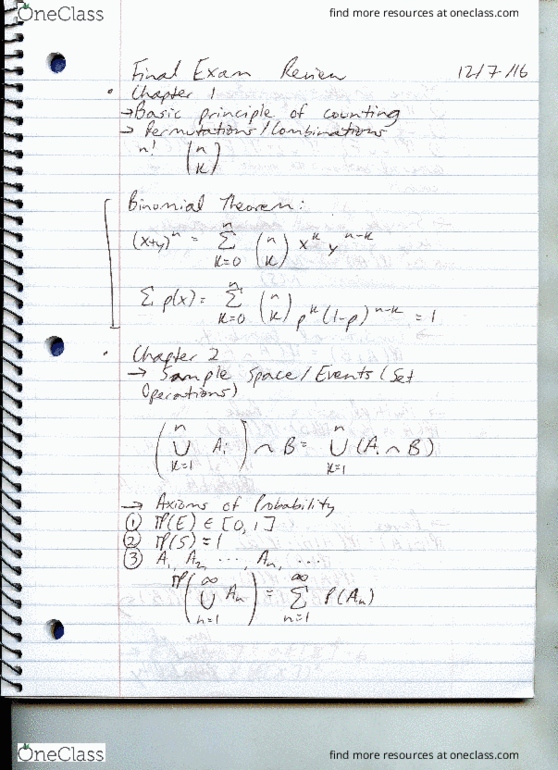 OneClass
find more resources at oneclass.com
Final Exam Review 12/7/16
• Chapter 1
→ Basic principle of counting
→ Permutations/Combinations
n! (n K)
Binomial Theorem:
(x+y)^n = Σ_{K=0}^{n} (n K) x^K y^{n-K}
Σ p(x) = Σ_{K=0}^{n} (n K) p^K (1-p)^{n-K} = 1
• Chapter 2
→ Sample Space/Events (Set
Operations)
(∪_{K=1}^{n} A_i) ∩ B = ∪_{K=1}^{n} (A_i ∩ B)
→ Axioms of Probability
① ℙ(E) ∈ [0, 1]
② ℙ(S) = 1
③ A_1 A_2 ..., A_n, ...
ℙ(∪_{n=1}^{∞} A_n) = Σ_{n=1}^{∞} P(A_n)
OneClass
find more resources at oneclass.com